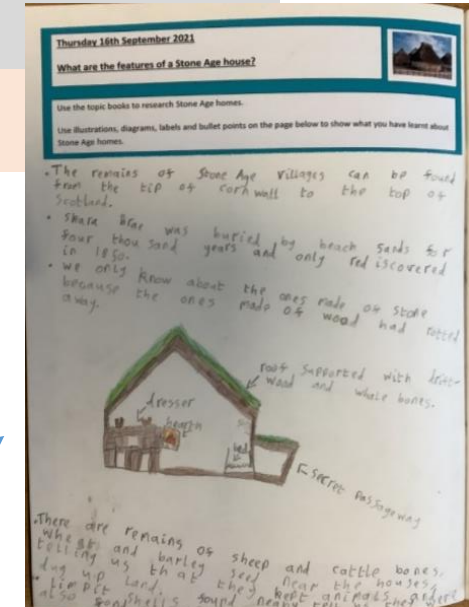 Thursday 16th September 2021
What are the features of a Stone Age house?
Use the topic books to research Stone Age homes.
Use illustrations, diagrams, labels and bullet points on the page below to show what you have learnt about
Stone Age homes.
• The remains of Stone Age villages can be found
from the tip of cornwall to the top of
Scotland.
• Skara Brae was buried by beach sands for
four thousand years and only rediscovered
in 1850.
• we only know about the ones made of stone
because the ones made of wood had rotted
away.
roof supported with drift-
wood and whale bones.
dresser
hearth
bed
secret passageway
• There are remains of sheep and cattle bones,
wheat and barley seed near the houses,
telling us that they kept animals and
dug up land.
also found